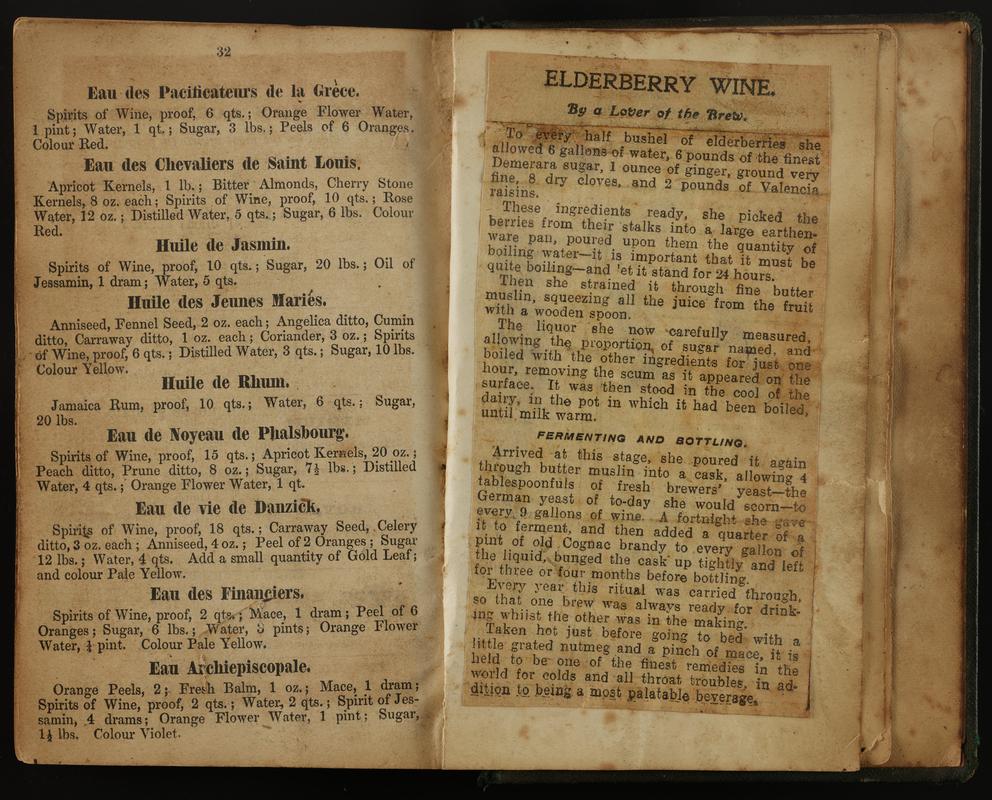 32
Eau des Pacificateurs de la Grèce.
Spirits of Wine, proof, 6 qts.; Orange Flower Water,
1 pint; Water, 1 qt.; Sugar, 3 lbs.; Peels of 6 Oranges.
Colour Red.
Eau des Chevaliers de Saint Louis.
Apricot Kernels, 1 lb.; Bitter Almonds, Cherry Stone
Kernels, 8 oz. each; Spirits of Wine, proof, 10 qts.; Rose
Water, 12 oz.; Distilled Water, 5 qts.; Sugar, 6 lbs. Colour
Red.
Huile de Jasmin.
Spirits of Wine, proof, 10 qts.; Sugar, 20 lbs.; Oil of
Jessamin, 1 dram; Water, 5 qts.
Huile des Jeunes Mariés.
Anniseed, Fennel Seed, 2 oz. each; Angelica ditto, Cumin
ditto, Carraway ditto, 1 oz. each; Coriander, 3 oz.; Spirits
of Wine, proof, 6 qts.; Distilled Water, 3 qts.; Sugar, 10 lbs.
Colour Yellow.
Huile de Rhum.
Jamaica Rum, proof, 10 qts.; Water, 6 qts.; Sugar,
20 lbs.
Eau de Noyeau de Phalsbourg.
Spirits of Wine, proof, 15 qts.; Apricot Kernels, 20 oz.;
Peach ditto, Prune ditto, 8 oz.; Sugar, 7½ lbs.; Distilled
Water, 4 qts.; Orange Flower Water, 1 qt.
Eau de vie de Danzick.
Spirits of Wine, proof, 18 qts.; Carraway Seed, Celery
ditto, 3 oz. each; Anniseed, 4 oz.; Peel of 2 Oranges; Sugar
12 lbs.; Water, 4 qts. Add a small quantity of Gold Leaf;
and colour Pale Yellow.
Eau des Financiers.
Spirits of Wine, proof, 2 qts.; Mace, 1 dram; Peel of 6
Oranges; Sugar, 6 lbs.; Water, pints; Orange Flower
Water, pint. Colour Pale Yellow.
Eau Archiepiscopale.
Orange Peels, 2; Fresh Balm, 1 oz.; Mace, 1 dram;
Spirits of Wine, proof, 2 qts.; Water, 2 qts.; Spirit of Jes-
samin, 4 drams; Orange Flower Water, 1 pint; Sugar,
1½ lbs. Colour Violet.
ELDERBERRY WINE.
By a Lover of the Brew.
To every half bushel of elderberries she
allowed 6 gallons of water, 6 pounds of the finest
Demerara sugar, 1 ounce of ginger, ground very
fine, 8 dry cloves, and 2 pounds of Valencia
raisins.
These ingredients ready, she picked the
berries from their stalks into a large earthen-
ware pan, poured upon them the quantity of
boiling water—it is important that it must be
quite boiling—and let it stand for 24 hours.
Then she strained it through fine butter
muslin, squeezing all the juice from the fruit
with a wooden spoon.
The liquor she now carefully measured,
allowing the proportion of sugar named, and
boiled with the other ingredients for just one
hour, removing the scum as it appeared on the
surface. It was then stood in the cool of the
dairy, in the pot in which it had been boiled,
until milk warm.
FERMENTING AND BOTTLING.
Arrived at this stage, she poured it again
through butter muslin into a cask, allowing 4
tablespoonfuls of fresh brewers' yeast—the
German yeast of to-day she would scorn—to
every 9 gallons of wine. A fortnight she gave
it to ferment, and then added a quarter of a
pint of old Cognac brandy to every gallon of
the liquid, bunged the cask up tightly and left
for three or four months before bottling.
Every year this ritual was carried through,
so that one brew was always ready for drink-
ing whilst the other was in the making.
Taken hot just before going to bed with a
little grated nutmeg and a pinch of mace, it is
held to be one of the finest remedies in the
world for colds and all throat troubles, in ad-
dition to being a most palatable beverage.